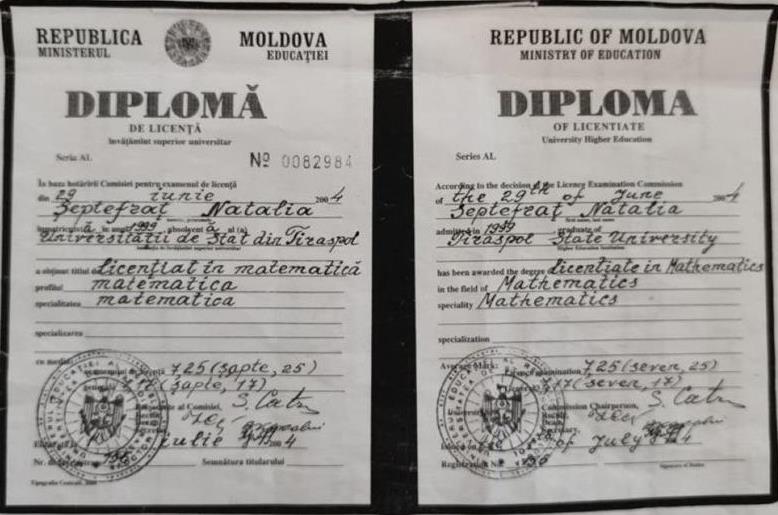 REPUBLICA MOLDOVA
MINISTERUL EDUCAŢIEI
DIPLOMĂ
DE LICENŢĂ
învăţămînt superior universitar
Seria AL
№ 0082984
În baza hotărîrii Comisiei pentru examenul de licenţă
din 29 iunie 2004
Şeptefraţ Natalia
înmatriculată în anul 1999 absolventă a al (a)
Universităţii de Stat din Tiraspol
a obţinut titlul de Licenţiat în matematică
profilul matematica
specialitatea matematica
specializarea
cu media
examenului de licenţă 7,25 (şapte, 25)
7,17 (şapte, 17)
Comisiei,
iulie 2004
Semnătura titularului
REPUBLIC OF MOLDOVA
MINISTRY OF EDUCATION
DIPLOMA
OF LICENTIATE
University Higher Education
Series AL
According to the decision of the Licence Examination Commission
of the 29th of June 2004
Şeptefraţ Natalia
admitted in 1999 graduate of
Tiraspol State University
has been awarded the degree Licentiate in Mathematics
in the field of Mathematics
speciality Mathematics
specialization
Average Mark:
examination 7,25 (seven, 25)
7,17 (seven, 17)
Commission Chairperson,
of July
Registration №